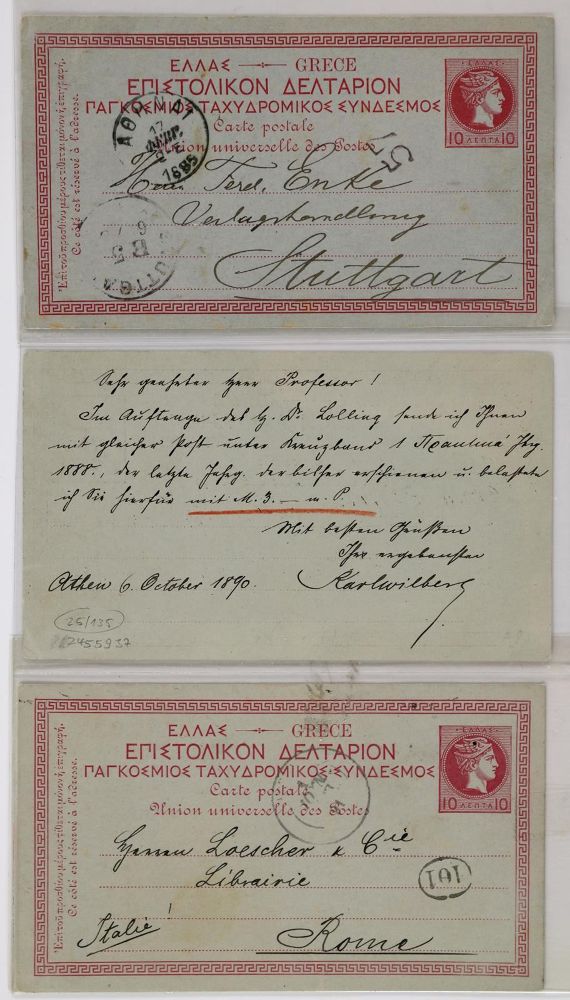 ΕΛΛΑΣ GRECE
ΕΠΙΣΤΟΛΙΚΟΝ ΔΕΛΤΑΡΙΟΝ
ΠΑΓΚΟΣΜΙΟΣ ΤΑΧΥΔΡΟΜΙΚΟΣ ΣΥΝΔΕΣΜΟΣ
Carte postale
Union universelle des Postes
Ἐπὶ τοῦ προσθίου μέρους τίθεται μόνον ἡ ἐπιγραφή.
Ce côté est réservé à l'adresse.
ΕΛΛΑΣ
10 ΛΕΠΤΑ 10
ΑΘΗΝΑΙ
17
1889
57
Herrn Ferd. Enke
Verlagshandlung
Stuttgart
Sehr geehrter Herr Professor!
Im Auftrage des H. Dr. Lolling sende ich Ihnen
mit gleicher Post unter Kreuzband 1 Πρακτικά Jhrg.
1888., der letzte Jahrg. der bisher erschienen u. belastete
ich Sie hierfür mit M. 3. — m. P.
Mit besten Grüßen
Ihr ergebenster
Karl Wilberg
Athen 6. October 1890.
25/135
2455937
ΕΛΛΑΣ GRECE
ΕΠΙΣΤΟΛΙΚΟΝ ΔΕΛΤΑΡΙΟΝ
ΠΑΓΚΟΣΜΙΟΣ ΤΑΧΥΔΡΟΜΙΚΟΣ ΣΥΝΔΕΣΜΟΣ
Carte postale
Union universelle des Postes
Ἐπὶ τοῦ προσθίου μέρους τίθεται μόνον ἡ ἐπιγραφή.
Ce côté est réservé à l'adresse.
ΕΛΛΑΣ
10 ΛΕΠΤΑ 10
Herren Loescher & Cie
Librairie
101
Italie!
Rome